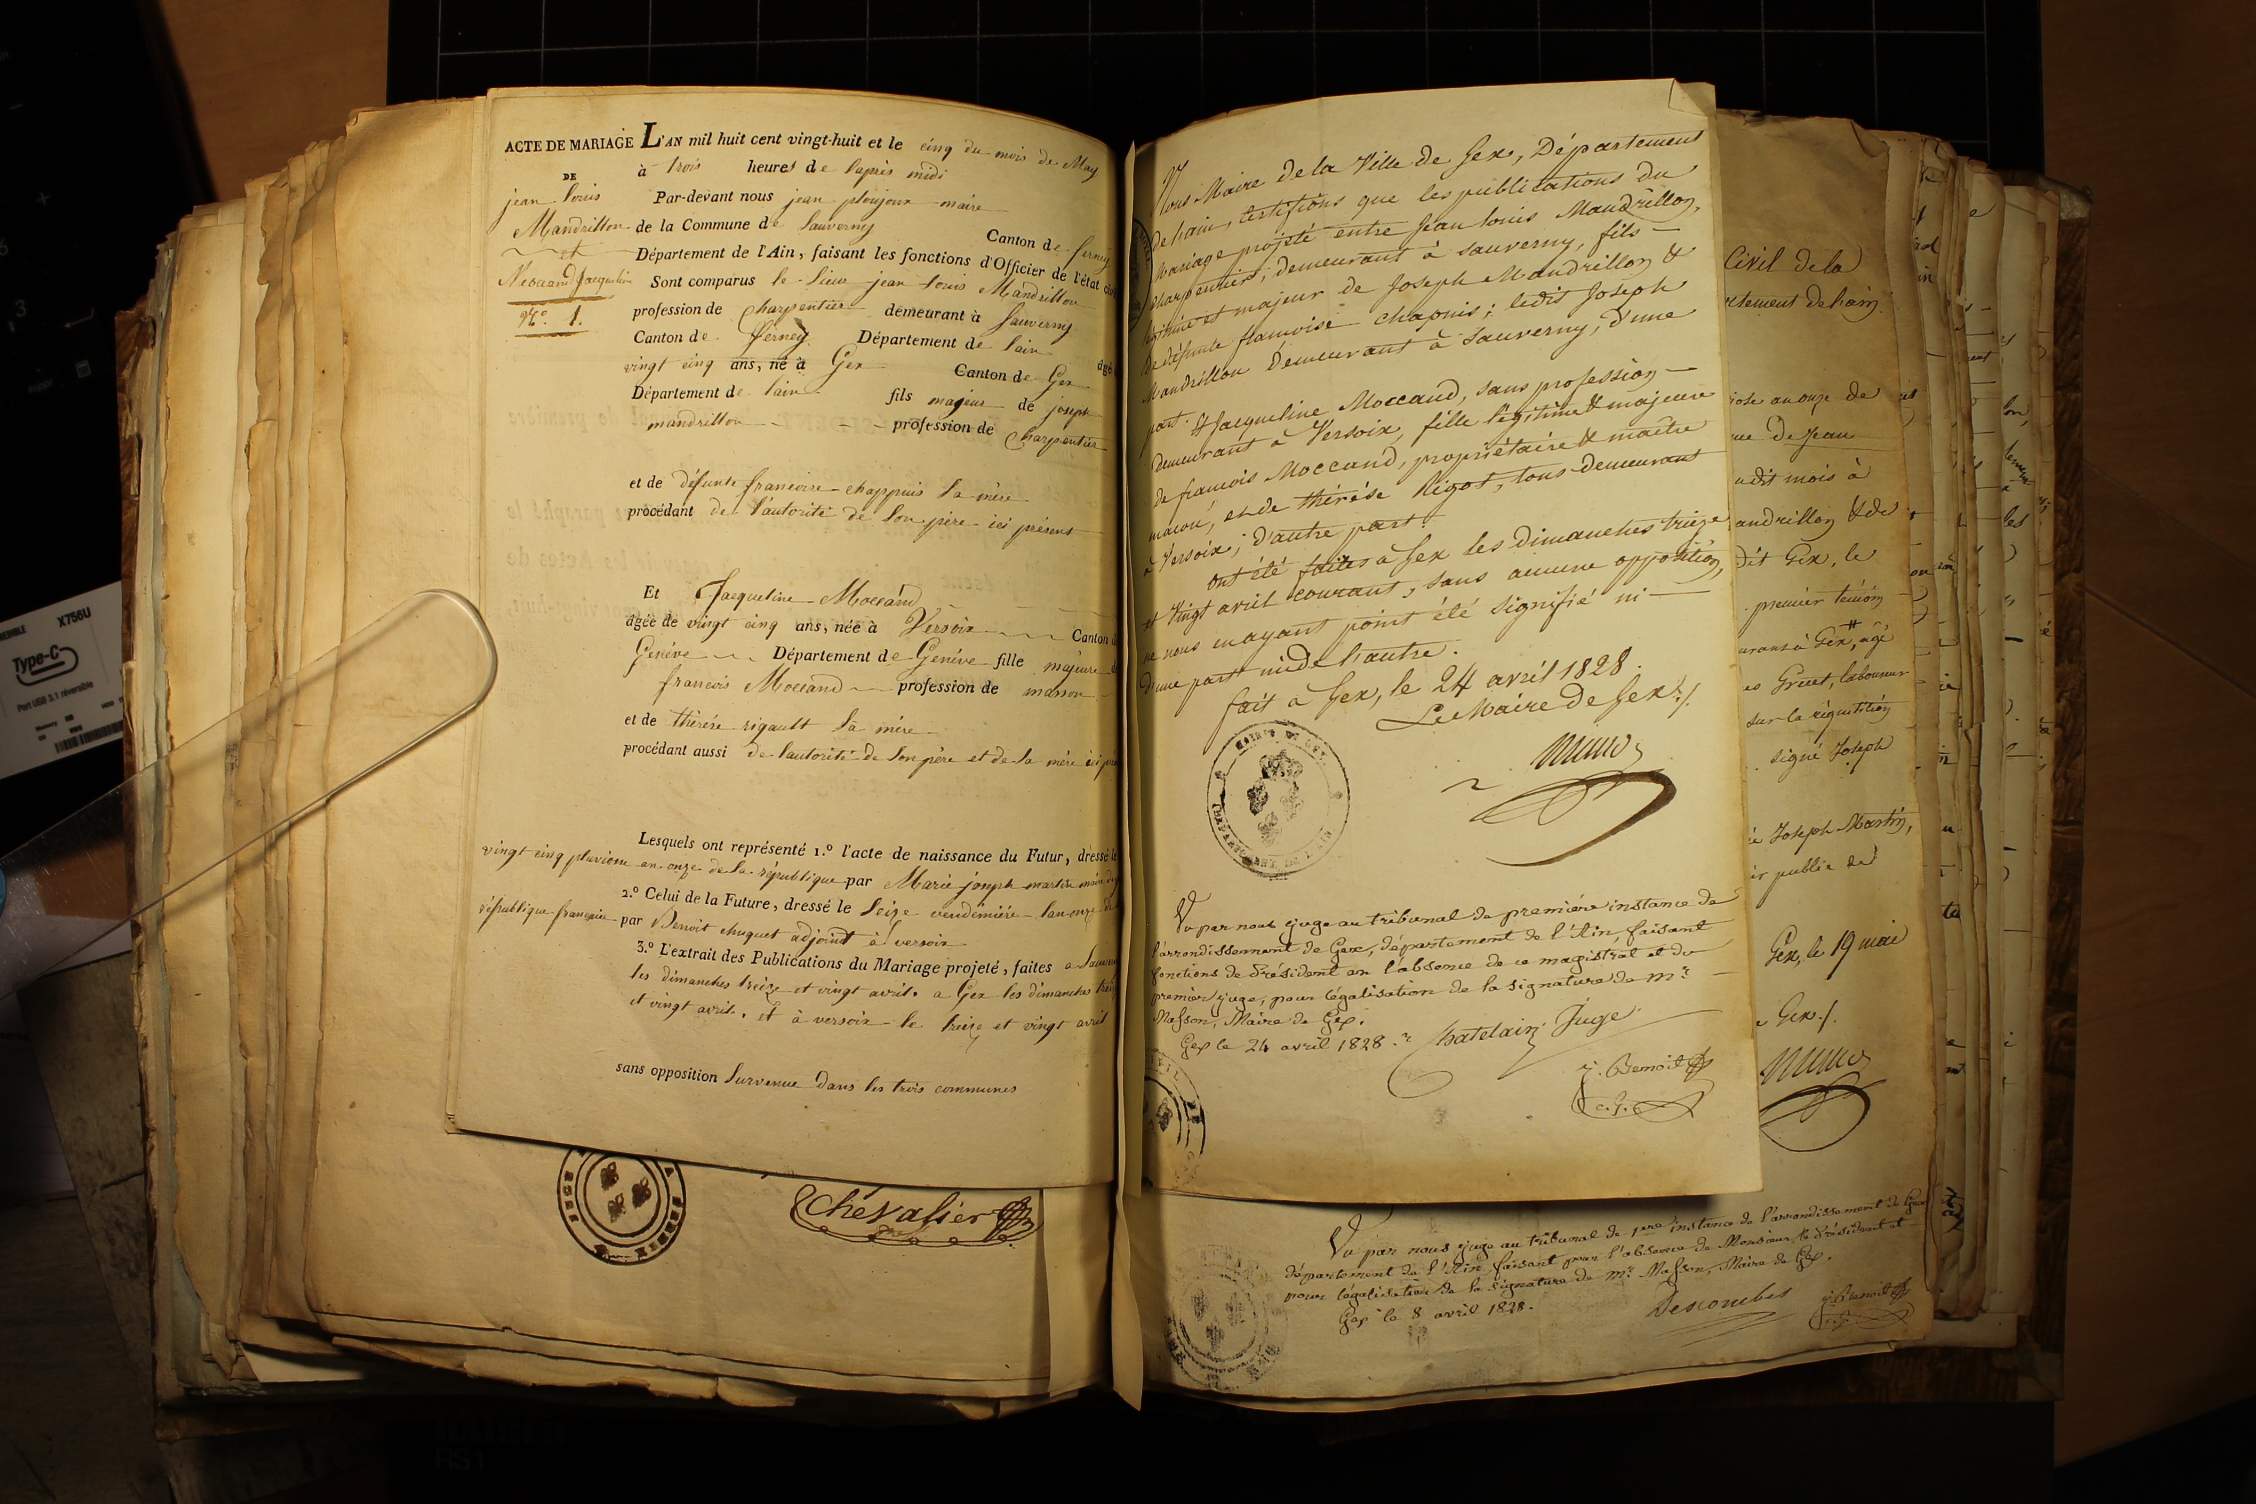 ACTE DE MARIAGE L'AN mil huit cent vingt-huit et le cinq du mois de May
à trois heures de l'après midi
DE
jean louis
Par-devant nous jean ploujoux maire
Mandrillon
de la Commune de Sauverny Canton de ferney
et
Département de l'Ain, faisant les fonctions d'Officier de l'état civ
Jacqueline
Sont comparus le Sieur jean louis Mandrillon
N.o 1.
profession de charpentier demeurant à Sauverny
Canton de ferney Département de lain âgé
vingt cinq ans, né à Gex Canton de Gex
Département de lain fils majeur de joseph
mandrillon profession de charpentier
et de défunte francoise chappuis Sa mère
procédant de l'autorité de Son père ici présent
Et Jacqueline Moccand
âgée de vingt cinq ans, née à Versoix Canton d
Genève Département de Genève fille majeure d
francois Moccand profession de masson
et de thérése rigault Sa mère
procédant aussi de l'autorité de Son père et de Sa mère ici
Lesquels ont représenté 1.o l'acte de naissance du Futur, dressé le
vingt cinq pluviose an onze de la république par Marie joseph martin maire
2.o Celui de la Future, dressé le Seize vendémiére lan onze de
république française par Benoit chuquet adjoint à versoix
3.o L'extrait des Publications du Mariage projeté, faites a
les dimanches treize et vingt avril. a Gex les dimanches
et vingt avril. et à versoix le treize et vingt avril
sans opposition Survenue dans les trois communes
Chevalier
Nous Maire de la Ville de Gex, Département
de Lain, certifions que les publications du
Mariage projeté entre Jean louis Mandrillon,
charpentier, demeurant à Sauverny, fils
légitime et majeur de Joseph Mandrillon &
de défunte françoise chapuis; ledit Joseph
Mandrillon demeurant à Sauverny, d'une
part & Jacqueline Moccand, sans profession
demeurant à Versoix, fille légitime & majeure
de françois Moccand, propriétaire & maître
macon, et de thérése Rigot, tous demeurant
à Versoix, d'autre part.
ont été faites à Gex les dimanches treize
et Vingt avril courant, sans aucune opposition,
ne nous en ayant point été signifié ni
d'une part ni de l'autre.
fait à Gex, le 24 avril 1828.
Le Maire de Gex
MAIRIE DE GEX
DÉPARTEMENT DE L'AIN
Vu par nous juge au tribunal de première instance de
l'arrondissement de Gex, département de l'Ain, faisant
fonctions de Président en l'absence de ce magistrat et du
premier juge, pour légalisation de la signature de Mr.
Masson, Maire de Gex.
Gex le 24 avril 1828.
Chatelain Juge
j. Benoit
c.g.
Civil de la
rtement de Lain
iose an onze de
ue de Jean
udit mois à
andrillon & de
dit Gex, le
premier témoin
urant à Gex, agé
Gruet, laboureur
sur la réquisition
signé Joseph
Joseph Martin,
ir public de
Gex, le 19 mai
Gex
Vu par nous juge au tribunal de 1ere instance de l'arrondissement de Gex
département de l'Ain faisant pour l'absence de Monsieur le Président et
pour légalisation de la signature de Mr. Masson, Maire de Gex.
Gex le 8 avril 1828.
Descombes
j. Benoit
X756U
Type-C
Port USB 3.1 réversible